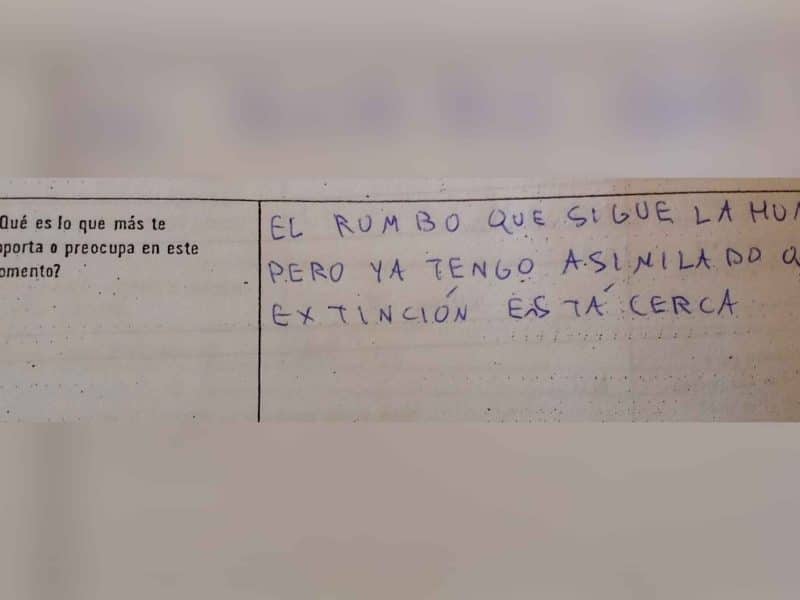 Qué es lo que más te
porta o preocupa en este
omento?
EL RUMBO QUE SIGUE LA HUM
PERO YA TENGO ASIMILADO Q
EXTINCIÓN ESTÁ CERCA